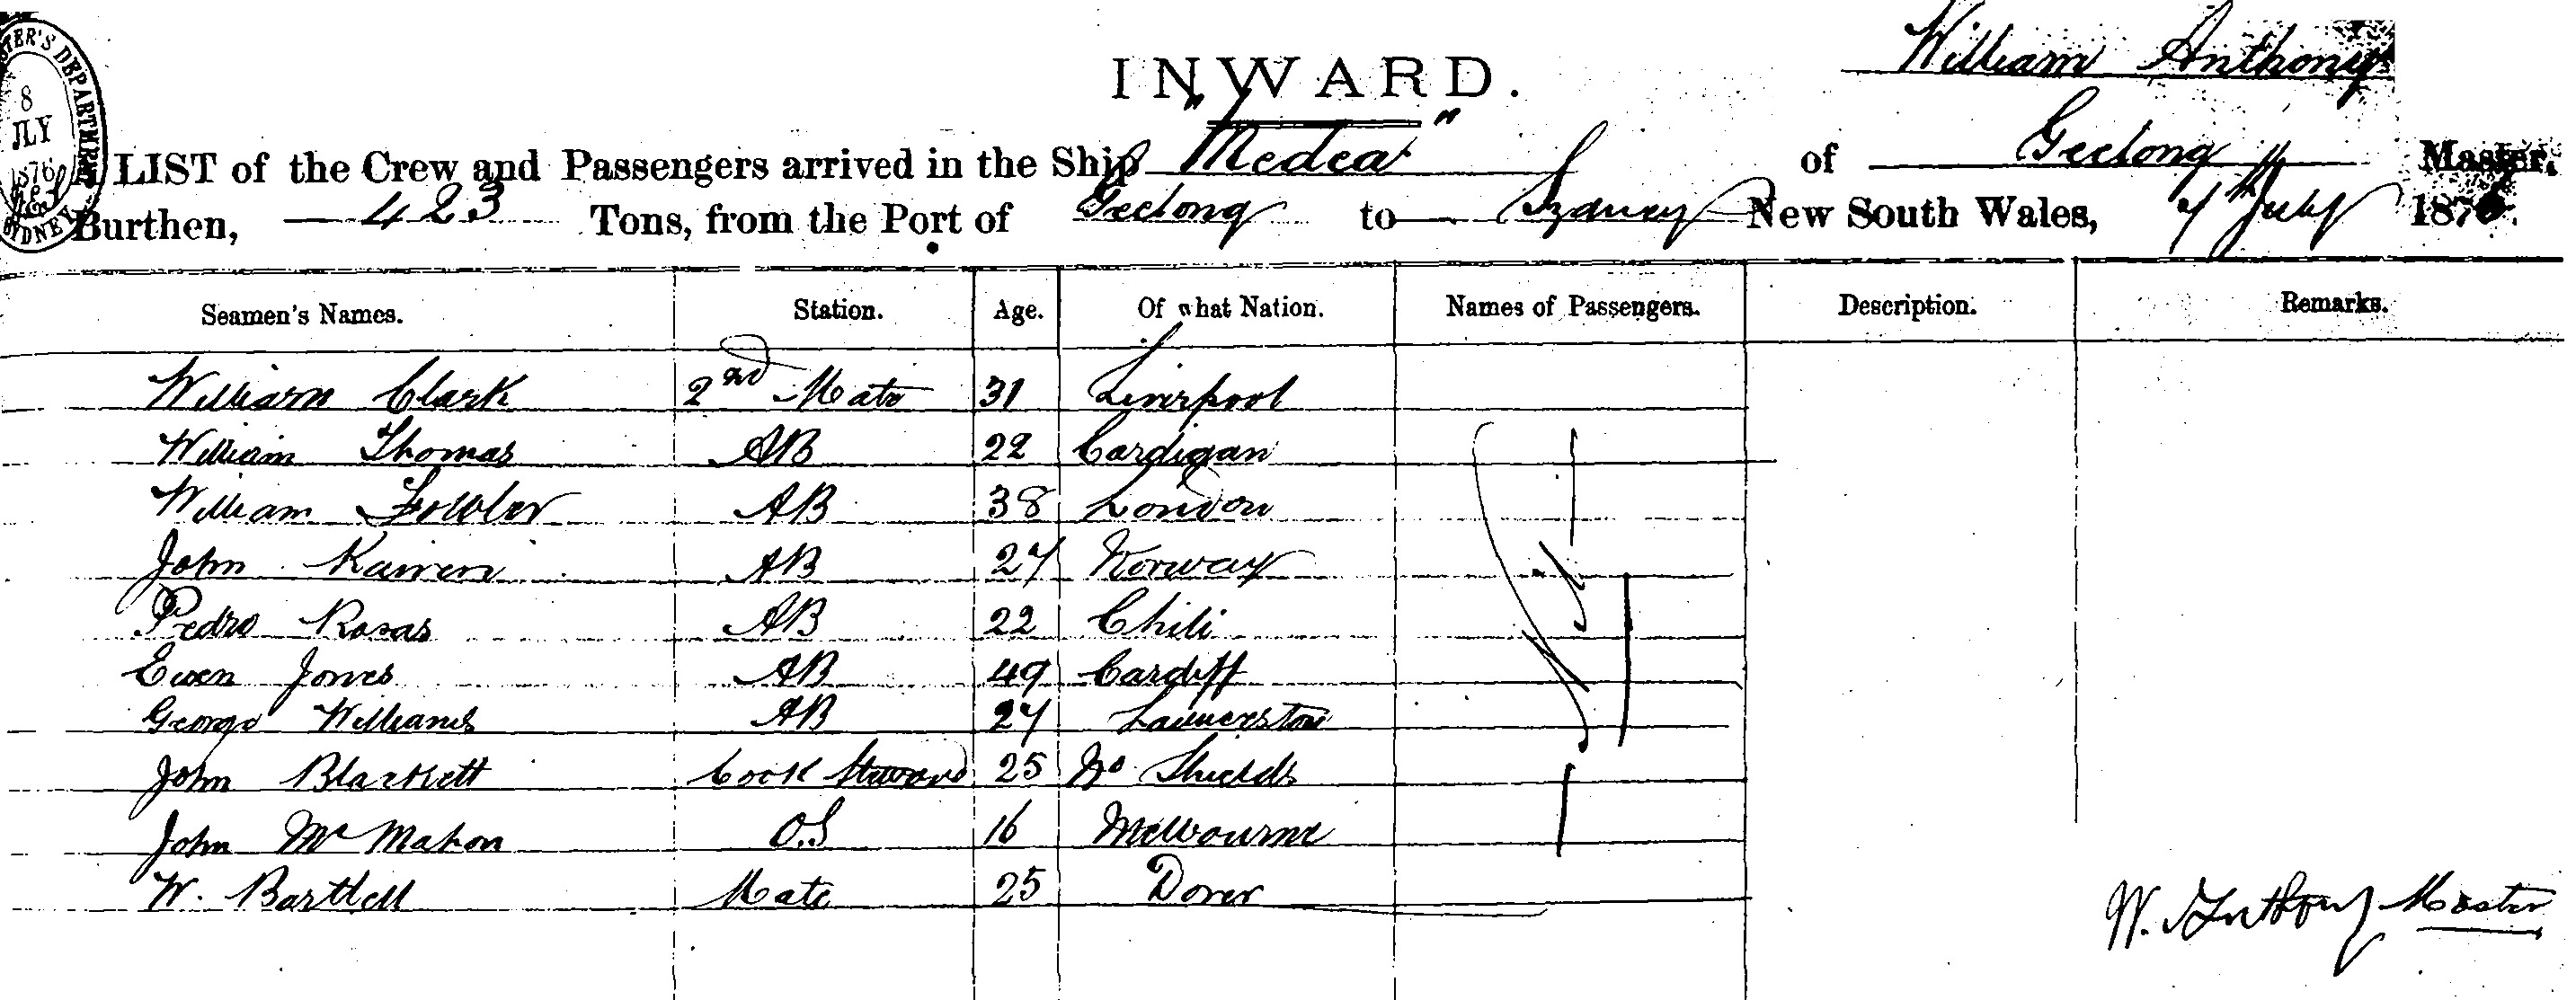 William Anthony
INWARD.
STER'S DEPARTMENT
8
JLY
1876
SYDNEY
LIST of the Crew and Passengers arrived in the Ship "Medea" of Geelong Master,
Burthen, 423 Tons, from the Port of Geelong to Sydney New South Wales, 7th July 1876.
Seamen's Names. Station. Age. Of what Nation. Names of Passengers. Description. Remarks.
William Clark 2nd Mate 31 Liverpool
William Thomas AB 22 Cardigan
William Fowler AB 38 London
John AB 27 Norway
Pedro Rosas AB 22 Chili
Ewen Jones AB 49 Cardiff
George Williams AB 27 Launceston
John Blackett Cook Steward 25 No Shields
John Mc Mahon O.S 16 Melbourne
W. Bartlett Mate 25 Dover
W. Anthony Master